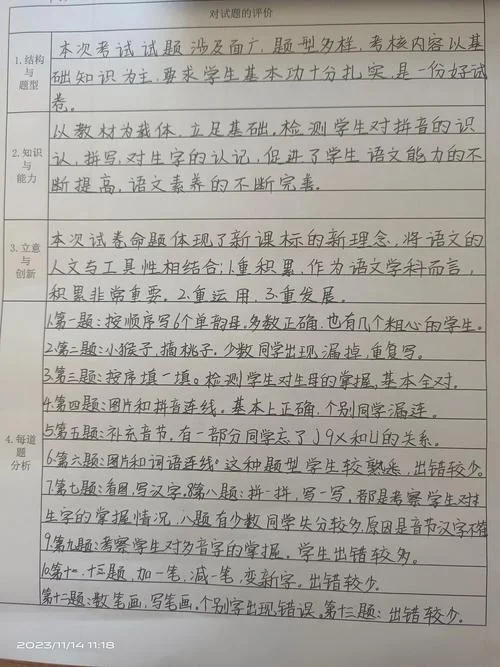 对试题的评价
1.结构
与
题型
本次考试试题涉及面广,题型多样,考核内容以基
础知识为主,要求学生基本功十分扎实,是一份好试
卷。
2.知识
与
能力
以教材为载体,立足基础,检测学生对拼音的识
认,拼写,对生字的认记,促进了学生语文能力的不
断提高,语文素养的不断完善。
3.立意
与
创新
本次试卷命题体现了新课标的新理念,将语文的
人文与工具性相结合;1.重积累,作为语文学科而言,
积累非常重要。2.重运用,3.重发展。
4.每道
题
分析
1.第一题:按顺序写6个单韵母,多数正确,也有几个粗心的学生。
2.第二题:小猴子,摘桃子,少数同学出现漏掉,重复写。
3.第三题:按序填一填。检测学生对生母的掌握,基本全对。
4.第四题:图片和拼音连线。基本上正确,个别同学漏连。
5.第五题:补充音节,有一部分同学忘了j9x和U的关系。
6.第六题:图片和词语连线。这种题型学生较熟悉,出错较少。
7.第七题:看图,写汉字,8第八题:拼一拼,写一写,都是考察学生对
生字的掌握情况,八题有少数同学失分较多,原因是音节汉字不
9.第九题:考察学生对多音字的掌握,学生出错较多。
10.第十一,十三题,加一笔,减一笔,变新字。出错较少。
第十二题:数笔画,写笔画,个别字出现错误。第十三题:出错较少。
2023/11/14 11:18